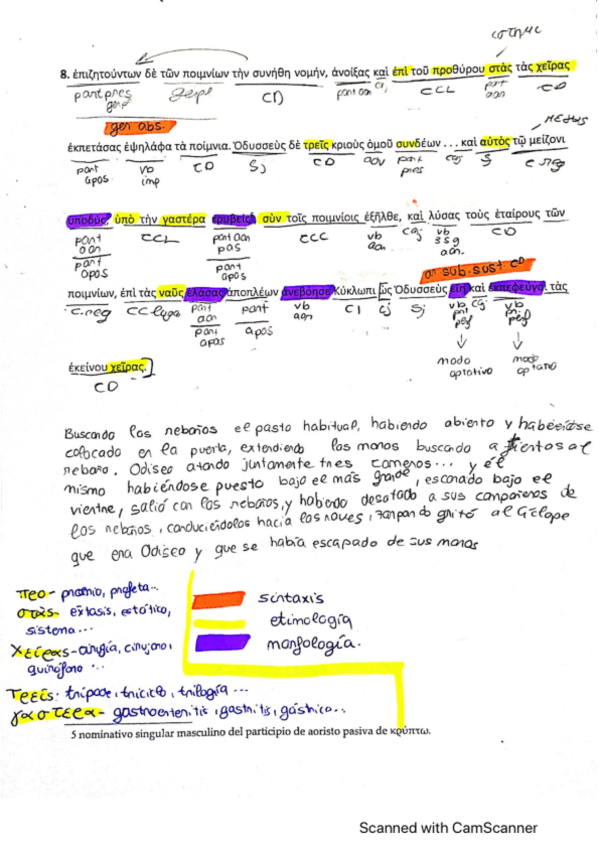 ιστημι
8. ἐπιζητούντων δὲ τῶν ποιμνίων τὴν συνήθη νομήν, ἀνοίξας καὶ ἐπὶ τοῦ προθύρου στὰς τὰς χεῖρας
part pres genp
genpl
CD
part aor
cj
CCL
part aor
CD
gen abs.
μεγας
ἐκπετάσας ἐψηλάφα τὰ ποίμνια. Ὀδυσσεὺς δὲ τρεῖς κριοὺς ὁμοῦ συνδέων ... καὶ αὐτὸς τῷ μείζονι
part apos
vb imp
CD
Sj
CD
adv
part pres
cj
S
C.reg
ὑποδύς, ὑπὸ τὴν γαστέρα κρυβεὶς5 σὺν τοῖς ποιμνίοις ἐξῆλθε, καὶ λύσας τοὺς ἑταίρους τῶν
part aor
part apos
CCL
part aor pas
part apos
CCC
vb aor.
cj
vb 3sg aor.
CD
or sub. sust CD
ποιμνίων, ἐπὶ τὰς ναῦς ἐλάσας ἀποπλέων ἀνεβόησε Κύκλωπι ὡς Ὀδυσσεὺς εἴη καὶ ἐκπεφεύγοι τὰς
C.reg
CC lugar
part aor
part apos
part
apos
vb aor
CI
cj
Sj
vb
cj
vb
modo optativo
modo optativo
ἐκείνου χεῖρας.
CD
Buscando los rebaños el pasto habitual, habiendo abierto y habiéndose
colocado en la puerta, extendiendo las manos buscando a tientas al
rebaño. Odiseo atando juntamente tres carneros... y él
mismo habiéndose puesto bajo el más grande, escondido bajo el
vientre, salió con los rebaños, y habiendo desatado a sus compañeros de
los rebaños, conduciéndolos hacia las naves, zarpando gritó al Cíclope
que era Odiseo y que se había escapado de sus manos
προ- proemio, profeta...
στὰς- éxtasis, estático,
sistema...
χείρας- cirugía, cirujano,
quirófano ...
Τρεῖς: trípode, triciclo, trilogía ...
γαστερα- gastroenteritis, gastritis, gástrico...
sintaxis
etimología
morfología.
5 nominativo singular masculino del participio de aoristo pasiva de κρύπτω.
Scanned with CamScanner